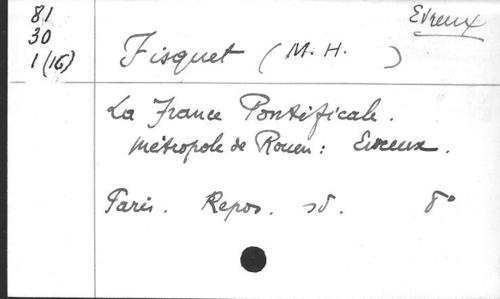 81
30
1 (16)
Evreux
Fisquet (M. H. )
La France Pontificale.
Métropole de Rouen: Evreux.
Paris. Repos. sd. 8°